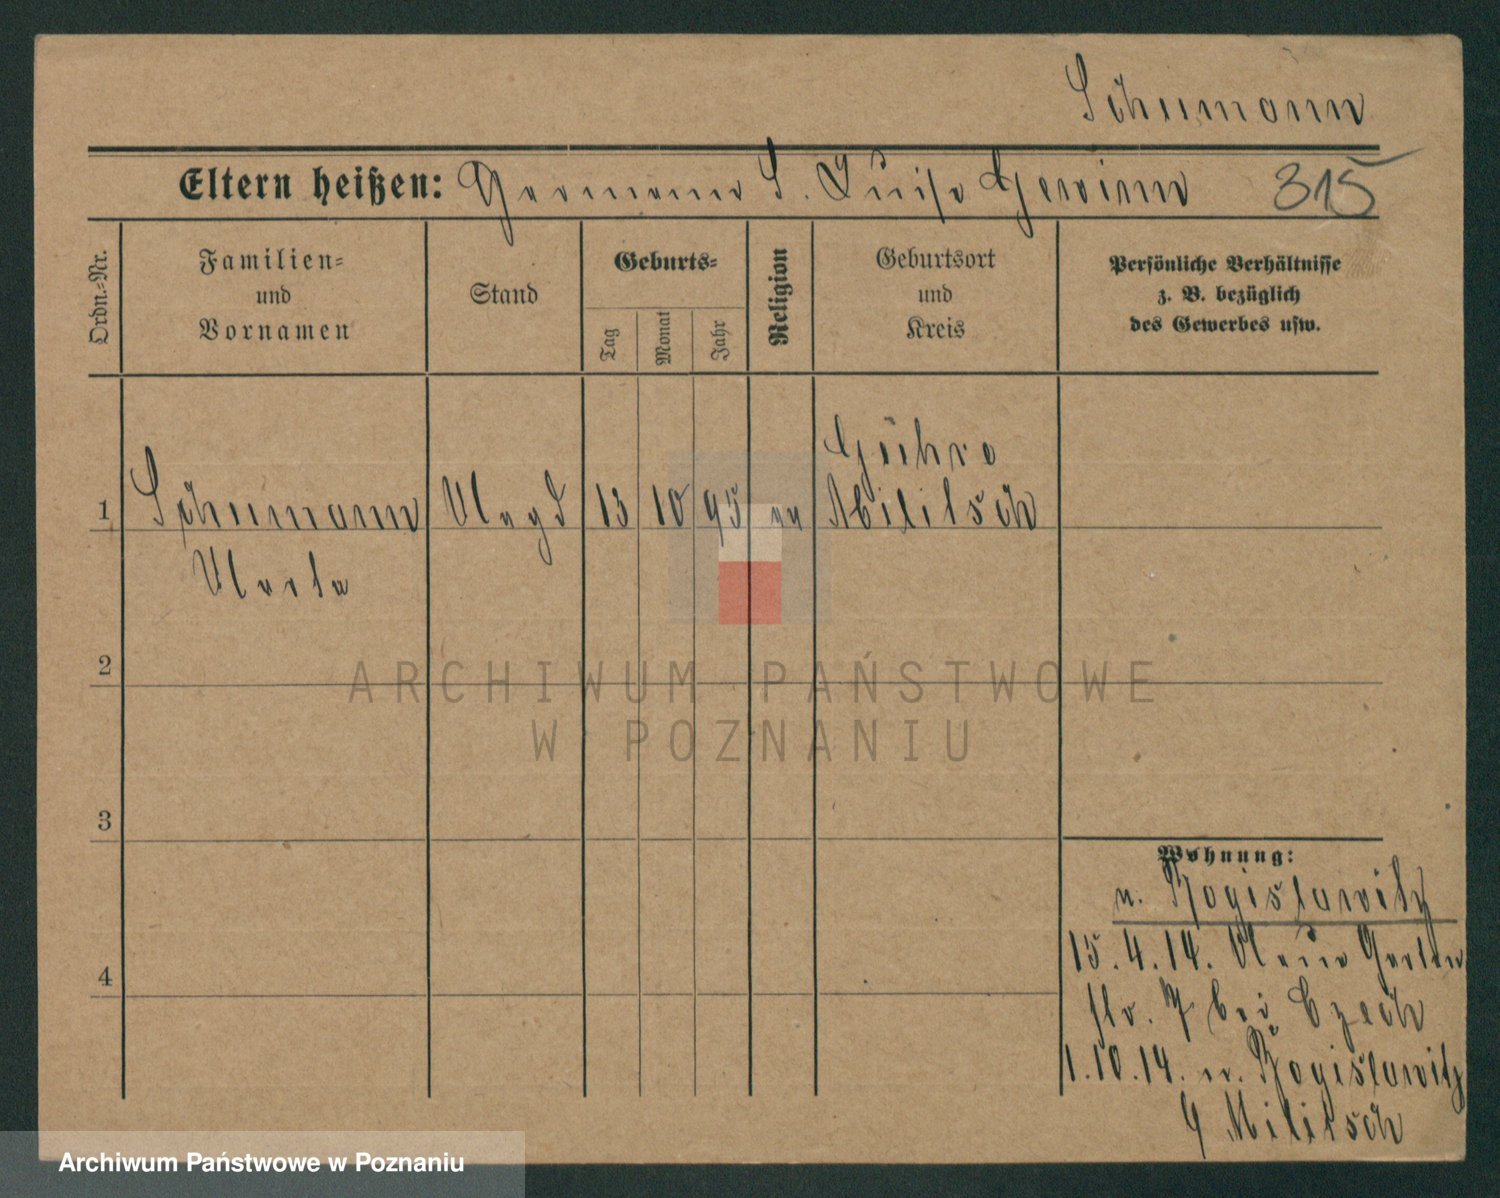 Schumann
Eltern heißen: Hermann S. Luise Gewinn 315
Ordn.-Nr.
Familien-
und
Vornamen
Stand
Geburts-
Tag
Monat
Jahr
Religion
Geburtsort
und
Kreis
Persönliche Verhältnisse
z. B. bezüglich
des Gewerbes usw.
1
Schumann
Marta
Magd
13
10
95
ev
Militsch
2
ARCHIWUM PAŃSTWOWE
W POZNANIU
3
4
Wohnung:
n. Bogislawitz
15.4.14. Neue Garten
str. 7 bei Czech
1.10.14. n. Bogislawitz
Militsch
Archiwum Państwowe w Poznaniu